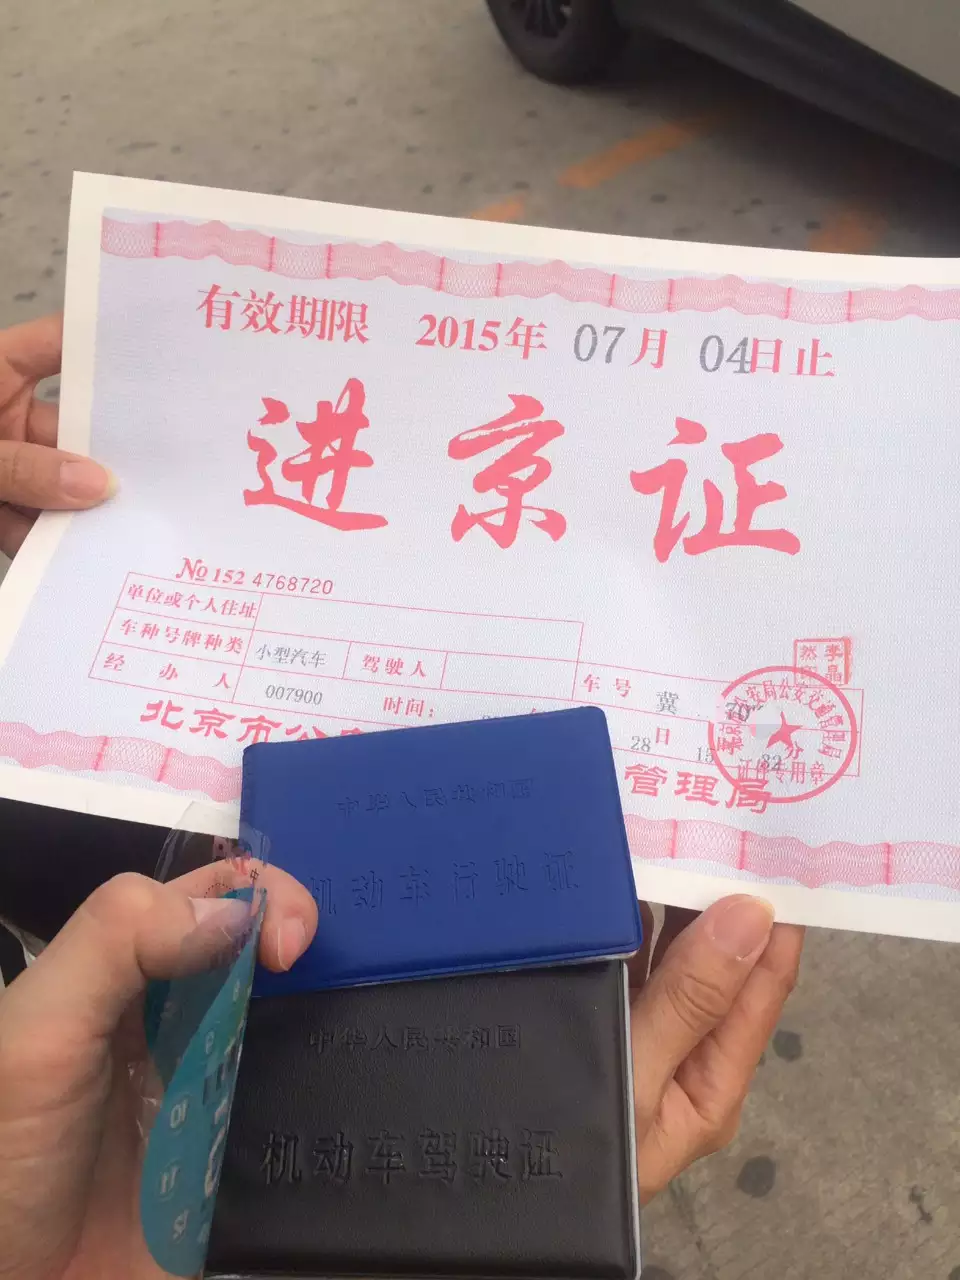 有效期限 2015年 07月 04日止
进京证
№ 152 4768720
单位或个人住址
车种号牌种类 小型汽车 驾驶人 车号 冀
经办人 007900 时间: 28日 15 分
北京市公 管理局
公安交通管理局
证件专用章
中华人民共和国
机动车行驶证
中华人民共和国
机动车驾驶证